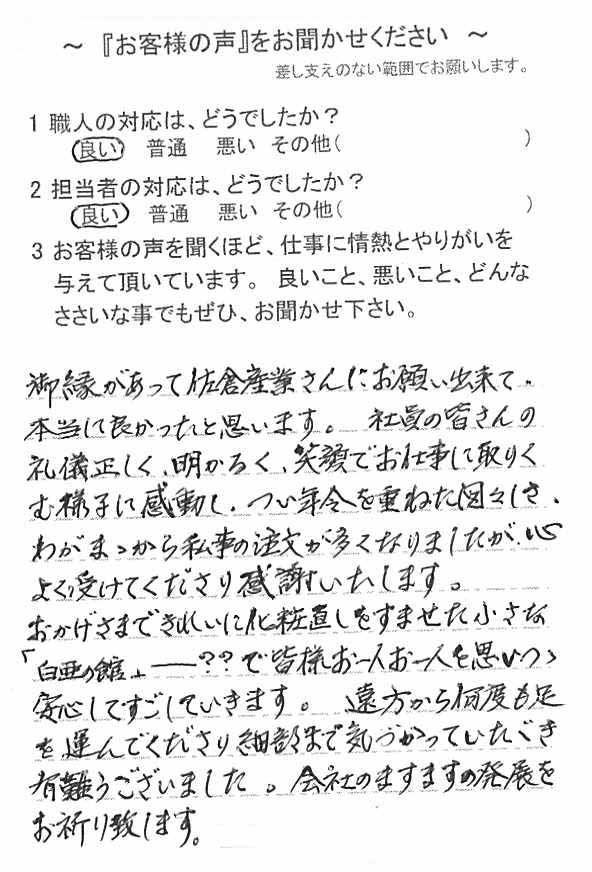 ~ 『お客様の声』をお聞かせください ~
差し支えのない範囲でお願いします。
1 職人の対応は、どうでしたか？
良い 普通 悪い その他( )
2 担当者の対応は、どうでしたか？
良い 普通 悪い その他( )
3 お客様の声を聞くほど、仕事に情熱とやりがいを
与えて頂いています。 良いこと、悪いこと、どんな
ささいな事でもぜひ、お聞かせ下さい。
御縁があって佐倉産業さんにお願い出来て。
本当に良かったと思います。 社員の皆さんの
礼儀正しく、明かるく、笑顔でお仕事に取りく
む様子に感動し、つい年令を重ねた図々しさ、
わがまゝから私事の注文が多くなりましたが、心
よく受けてくださり感謝いたします。
おかげさまできれいに化粧直しをすませた小さな
「白亜の館」──??で皆様お一人お一人を思いつゝ
安心してすごしていきます。 遠方から何度も足
を運んでくださり細部まで気づかっていたゞき
有難うございました。会社のますますの発展を
お祈り致します。